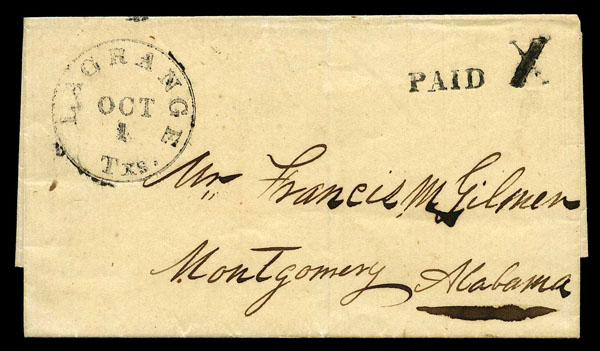 LAGRANGE
OCT
1
Txs.
PAID
Mr Francis M Gilmer
Montgomery Alabama